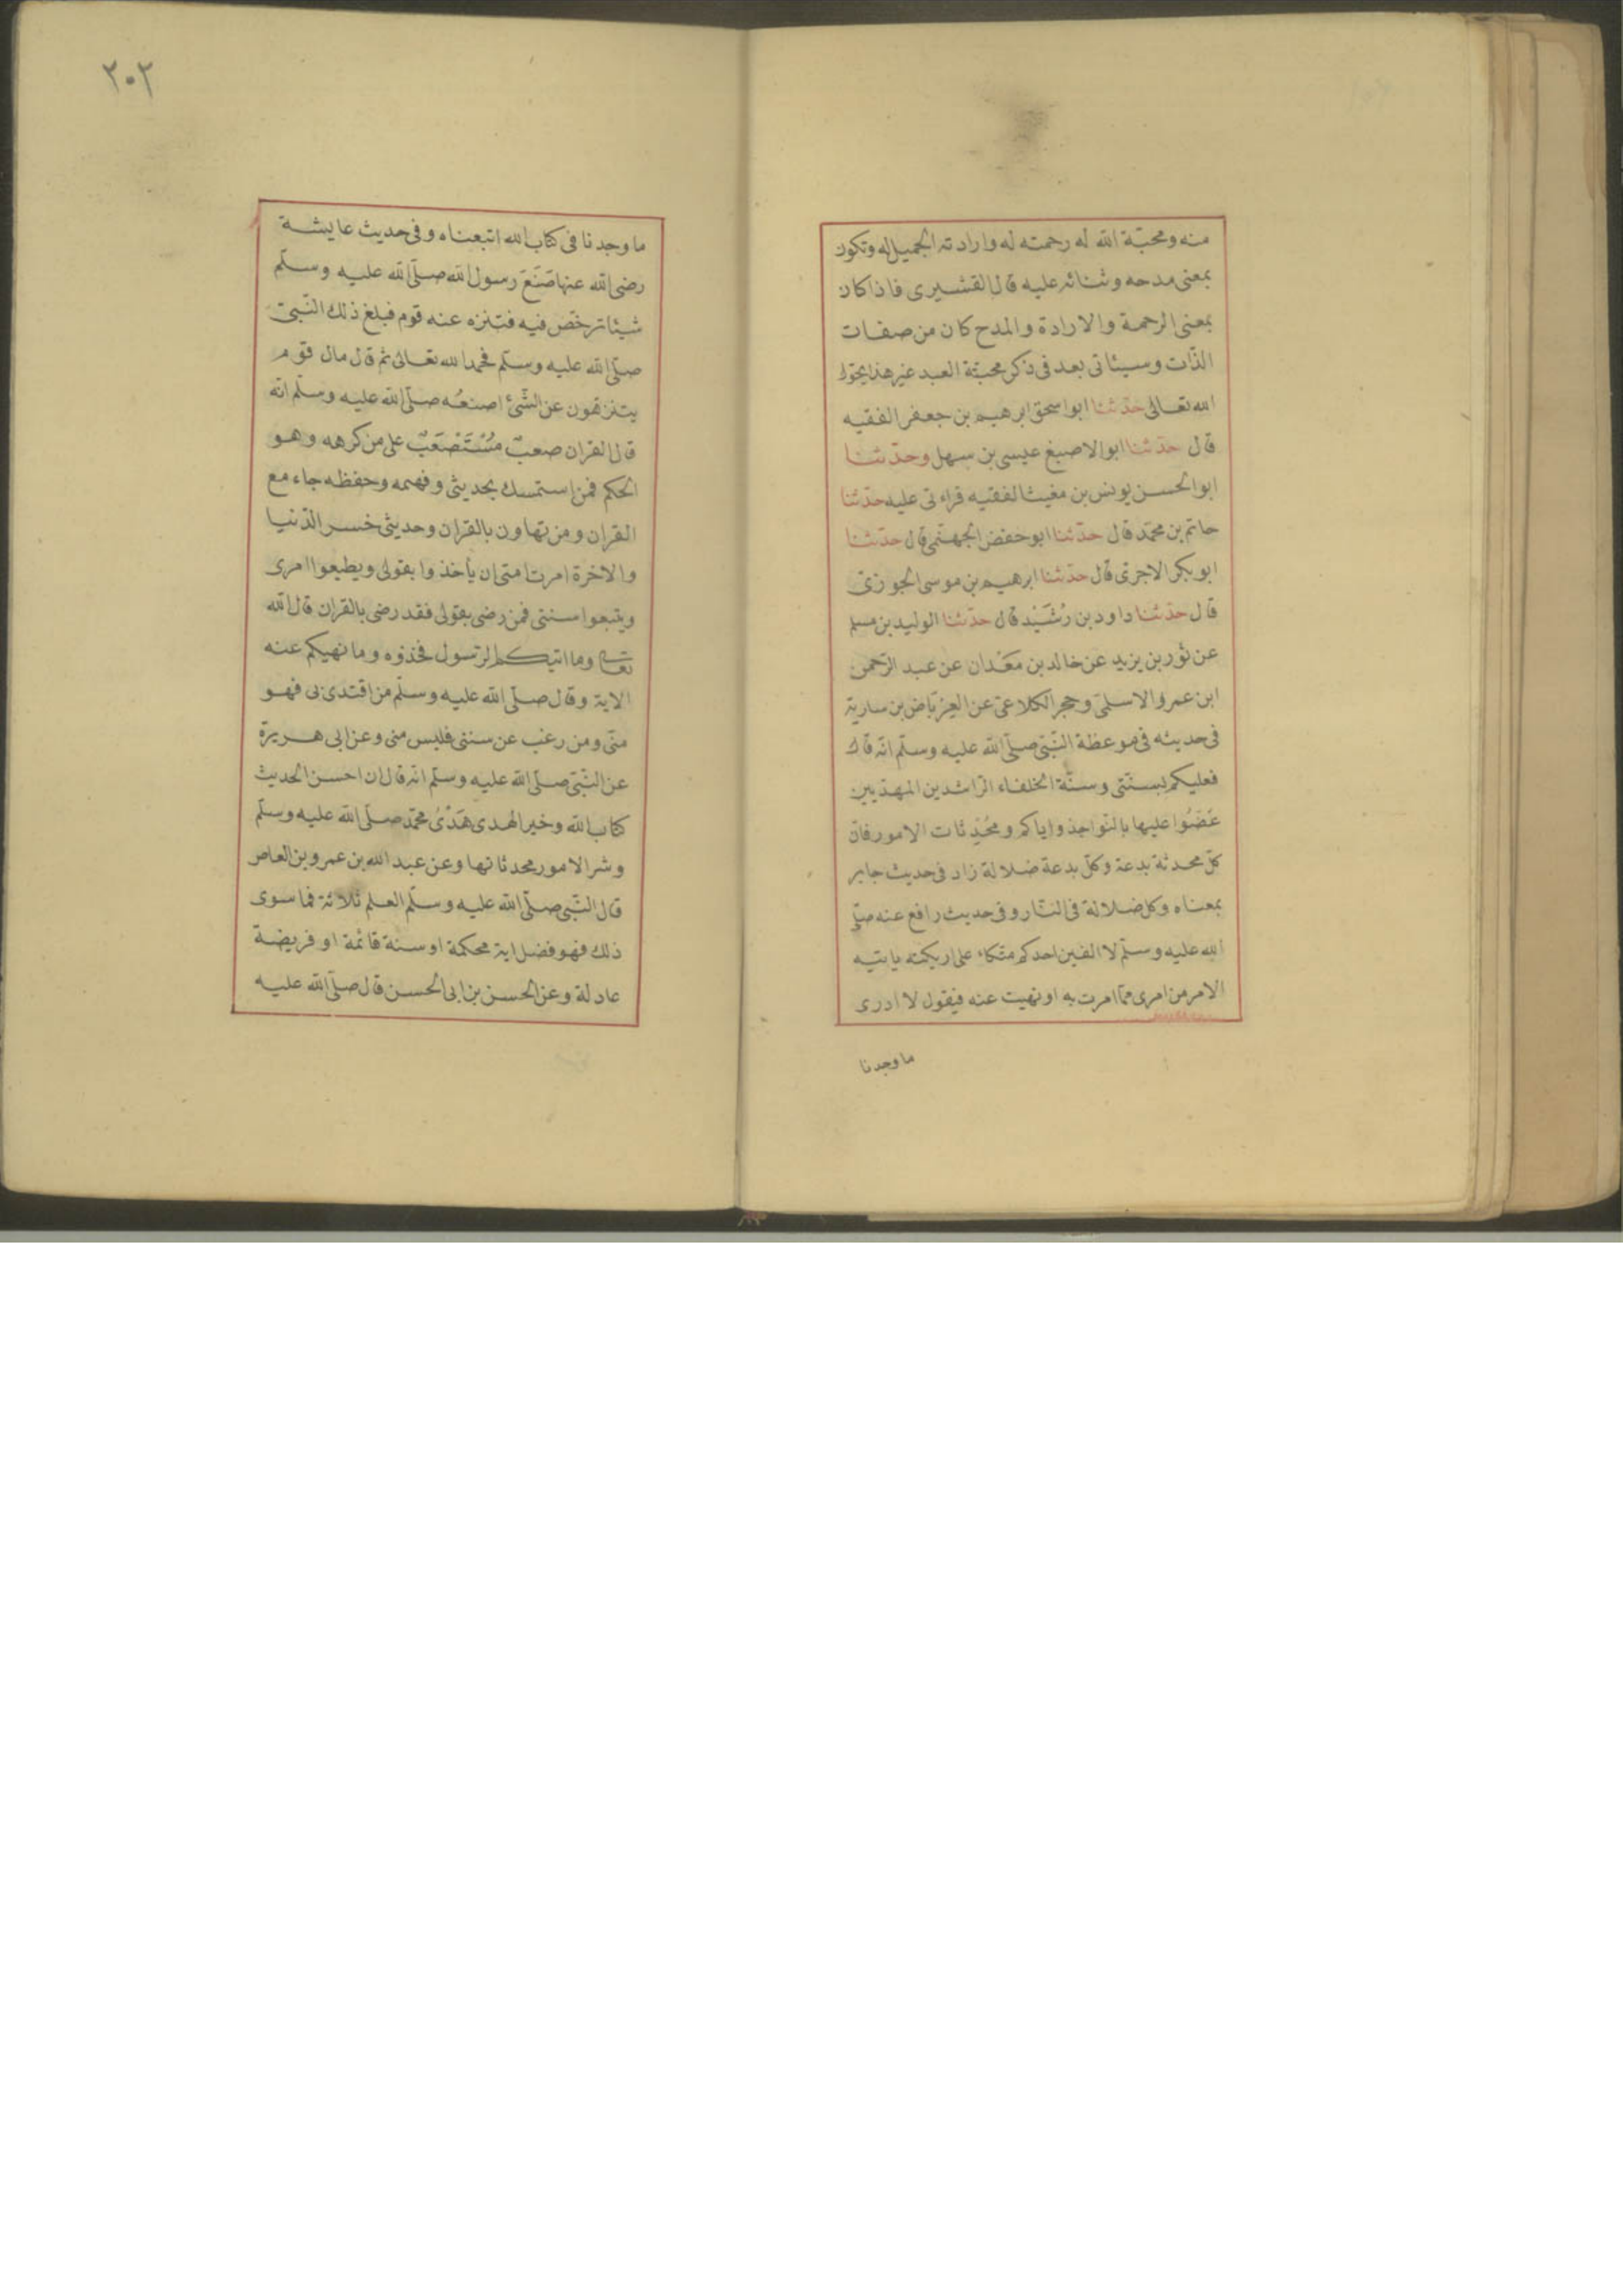 منه ومحبّة الله له رحمته له وارادته الجميل له وتكون
بمعنى مدحه وثنائه عليه قال القشيرى فاذا كان
بمعنى الرحمة والارادة والمدح كان من صفات
الذّات وسيئاتى بعد فى ذكر محبّة العبد غير هذا بحول
الله تعالى حدّثنا ابو اسحق ابرهيم بن جعفر الفقيه
قال حدّثنا ابو الاصبغ عيسى بن سهل وحدّثنا
ابو الحسن يونس بن مغيث الفقيه قراءتى عليه حدّثنا
حاتم بن محمّد قال حدّثنا ابو حفض الجهنّى قال حدّثنا
ابو بكر الاجرّى قال حدّثنا ابرهيم بن موسى الجوزىّ
قال حدّثنا داود بن رُشَيْد قال حدّثنا الوليد بن مسلم
عن ثور بن يزيد عن خالد بن مَعْدان عن عبد الرّحمن
ابن عمرو الاسلمىّ وحجر الكلاعىّ عن العِرْبَاض بن سارية
فى حديثه فى موعظة النّبّى صلّى الله عليه وسلّم انّه قال
فعليكم بسنّتى وسنّة الخلفاء الرّاشدين المهديّين
عَضّوا عليها بالنّواجذ واياكم ومُحْدِثات الامور فانّ
كلّ محدثة بدعة وكلّ بدعة ضلالة زاد فى حديث جابر
بمعناه وكل ضلالة فى النّار وفى حديث رافع عنه صلّى
الله عليه وسلّم لا الفين احدكم متكاء على اريكته ياتيه
الامر من امرى ممّا امرت به او نهيت عنه فيقول لا ادرى
ما وجدنا
٢٠٢
ما وجدنا فى كتاب الله اتبعناه وفى حديث عايشة
رضى الله عنها صَنَعَ رسول الله صلّى الله عليه وسلّم
شيئا ترخّص فيه فتنزه عنه قوم فبلغ ذلك النّبىّ
صلّى الله عليه وسلّم فحمد الله تعالى ثم قال مال قوم
يتنزهون عن الشّئ اصنعُه صلّى الله عليه وسلّم انّه
قال القران صعبٌ مُسْتَصْعَبٌ على من كرهه وهو
الحكم فمن استمسك بحديثى وفهمه وحفظه جاء مع
القران ومن تهاون بالقران وحديثى خسر الدّنيا
والاخرة امرت امتى ان يأخذوا بقولى ويطيعوا امرى
ويتبعوا سنتى فمن رضى بقولى فقد رضى بالقران قال الله
تعالى وما اتيكم الرّسول فخذوه وما نهيكم عنه
الاية وقال صلّى الله عليه وسلّم من اقتدى بى فهو
منّى ومن رغب عن سنتى فليس منى وعن ابى هريرة
عن النّبّى صلّى الله عليه وسلّم انّه قال ان احسن الحديث
كتاب الله وخير الهدى هَدْىُ محمّد صلّى الله عليه وسلّم
وشر الامور محدثاتها وعن عبد الله بن عمرو بن العاص
قال النّبّى صلّى الله عليه وسلّم العلم ثلاثة فما سوى
ذلك فهو فضل اية محكمة او سنة قائمة او فريضة
عادلة وعن الحسن بن ابى الحسن قال صلّى الله عليه